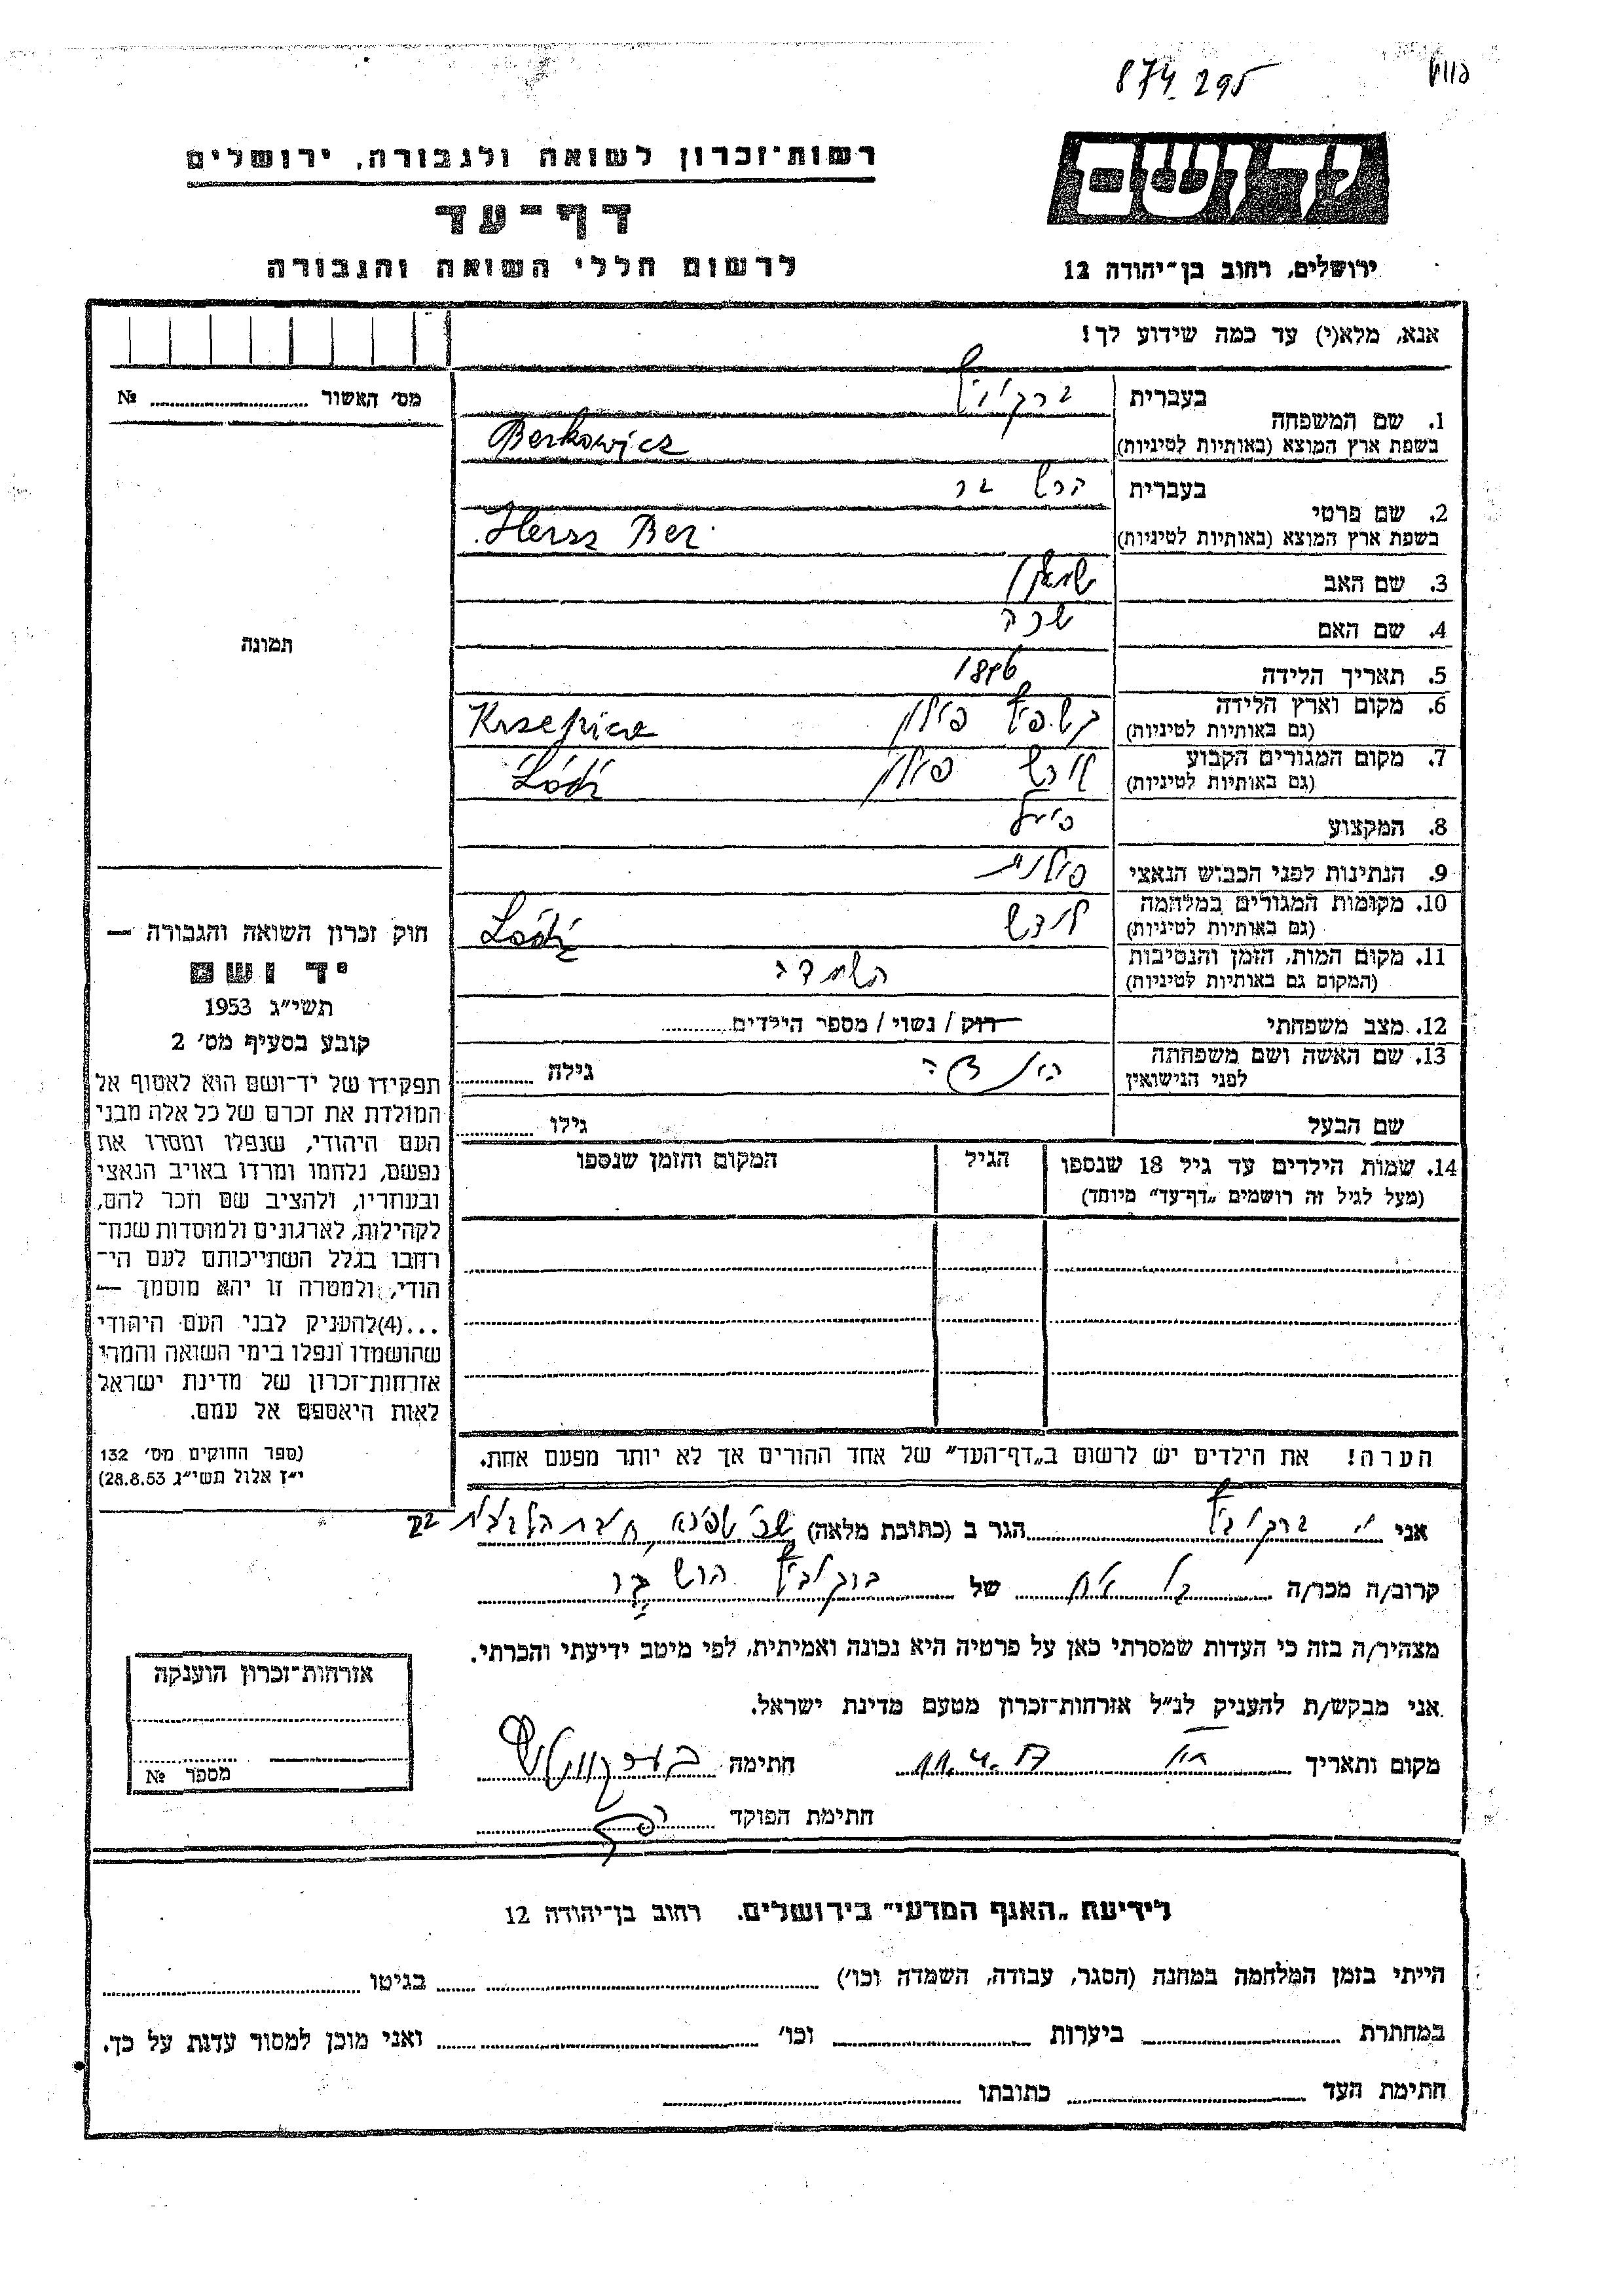 874.295
רשות־זכרון לשואה ולגבורה, ירושלים
דף־עד
לרשום חללי השואה והגבורה
יד ושם
ירושלים, רחוב בן־יהודה 12
אנא, מלא(י) עד כמה שידוע לך!
מס׳ האשור № 
1. שם המשפחה בעברית ברקוביץ
בשפת ארץ המוצא (באותיות לטיניות) Berkowicz
2. שם פרטי בעברית הרש בר
בשפת ארץ המוצא (באותיות לטיניות) Hersz Ber
3. שם האב
4. שם האם
5. תאריך הלידה
6. מקום וארץ הלידה (גם באותיות לטיניות) פולין Krzepice
7. מקום המגורים הקבוע (גם באותיות לטיניות) לודש פולין Łódź
8. המקצוע
9. הנתינות לפני הכבוש הנאצי פולנית
10. מקומות המגורים במלחמה (גם באותיות לטיניות) לודש Łódź
11. מקום המות, הזמן והנסיבות (המקום גם באותיות לטיניות)
12. מצב משפחתי רוק / נשוי / מספר הילדים
13. שם האשה ושם משפחתה לפני הנישואין גילה
שם הבעל גילו
14. שמות הילדים עד גיל 18 שנספו הגיל המקום והזמן שנספו
(מעל לגיל זה רושמים „דף־עד״ מיוחד)
הערה! את הילדים יש לרשום ב„דף־העד״ של אחד ההורים אך לא יותר מפעם אחת.
תמונה
חוק זכרון השואה והגבורה —
יד ושם
תשי״ג 1953
קובע בסעיף מס׳ 2
תפקידו של יד־ושם הוא לאסוף אל
המולדת את זכרם של כל אלה מבני
העם היהודי, שנפלו ומסרו את
נפשם, נלחמו ומרדו באויב הנאצי
ובעוזריו, ולהציב שם וזכר להם,
לקהילות, לארגונים ולמוסדות שנח־
רחבו בגלל השתייכותם לעם הי־
הודי, ולמטרה זו יהא מוסמך —
...(4)להעניק לבני העם היהודי
שהושמדו ונפלו בימי השואה והמרי
אזרחות־זכרון של מדינת ישראל
לאות היאספם אל עמם.
(ספר החוקים מס׳ 132
י״ז אלול תשי״ג 28.8.53)
אני ברקוביץ הגר ב (כתובת מלאה)
קרוב/ה מכר/ה של ברקוביץ הרש בר
מצהיר/ה בזה כי העדות שמסרתי כאן על פרטיה היא נכונה ואמיתית, לפי מיטב ידיעתי והכרתי.
אני מבקש/ת להעניק לנ״ל אזרחות־זכרון מטעם מדינת ישראל.
מקום ותאריך חתימה
חתימת הפוקד
אזרחות־זכרון הוענקה
מספר №
לידיעת „האגף המדעי״ בירושלים. רחוב בן־יהודה 12
הייתי בזמן המלחמה במחנה (הסגר, עבודה, השמדה וכו׳) בגיטו
במחתרת ביערות וכו׳ ואני מוכן למסור עדות על כך.
חתימת העד כתובתו